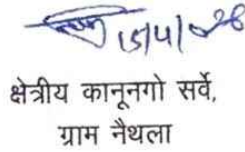 क्षेत्रीय कानूनगो सर्वे,
ग्राम नैथला